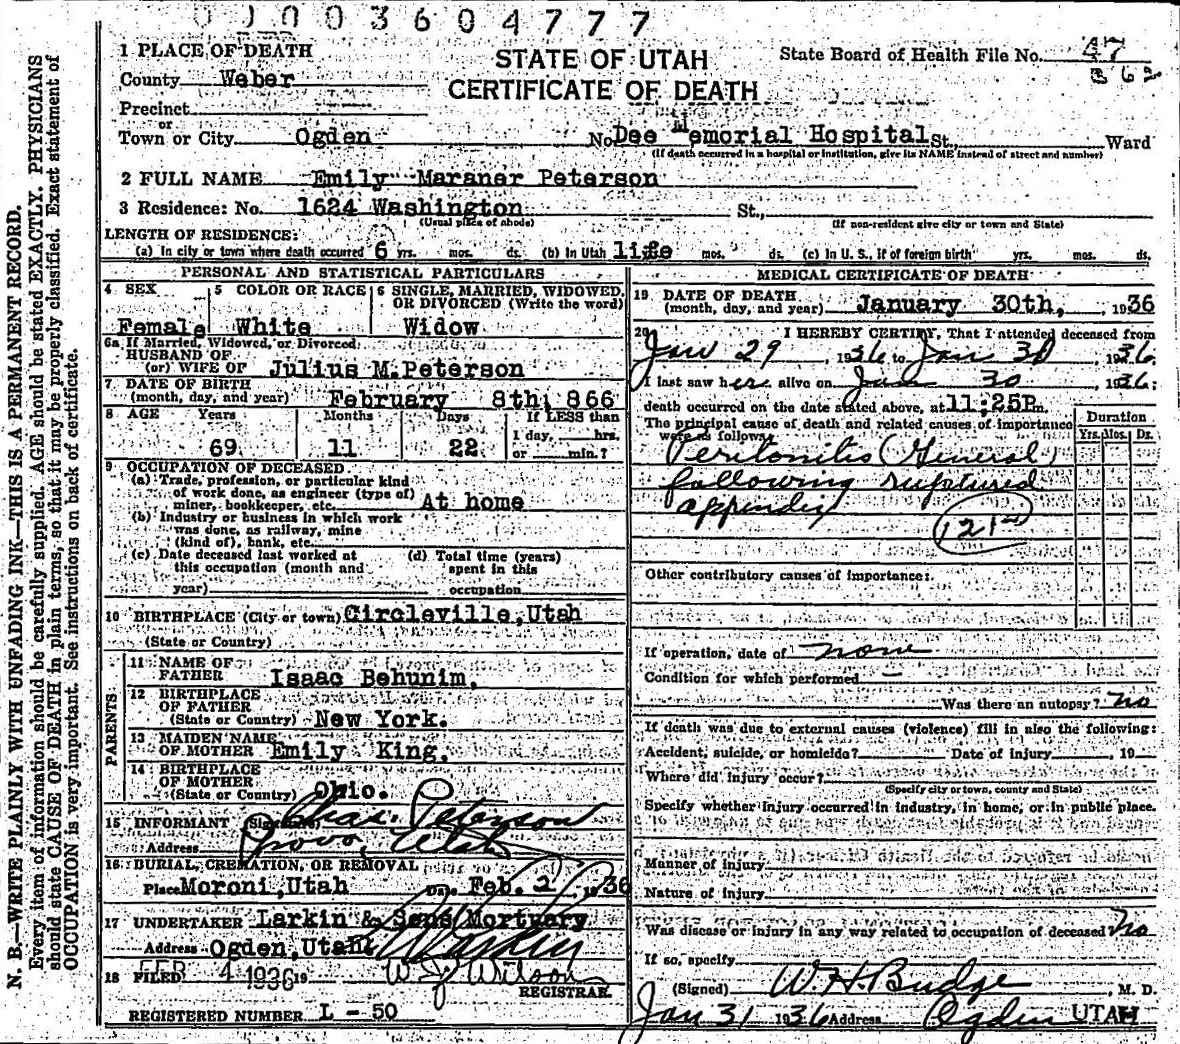 0 0 0 3 6 0 4 7 7 7
1 PLACE OF DEATH
STATE OF UTAH
CERTIFICATE OF DEATH
State Board of Health File No. 47
362
County Weber
Precinct
or
Town or City Ogden No. Dee Memorial Hospital St., Ward
(If death occurred in a hospital or institution, give its NAME instead of street and number)
2 FULL NAME Emily Maraner Peterson
3 Residence: No. 1624 Washington St.,
(Usual place of abode) (If non-resident give city or town and State)
LENGTH OF RESIDENCE:
(a) In city or town where death occurred 6 yrs. mos. ds. (b) In Utah life mos. ds. (c) In U. S., if of foreign birth yrs. mos. ds.
PERSONAL AND STATISTICAL PARTICULARS
4 SEX 5 COLOR OR RACE 6 SINGLE, MARRIED, WIDOWED,
OR DIVORCED (Write the word)
Female White Widow
6a If Married, Widowed, or Divorced
HUSBAND OF
(or) WIFE OF Julius M.Peterson
7 DATE OF BIRTH
(month, day, and year) February 8th; 866
8 AGE Years Months Days If LESS than
1 day, hrs.
69 11 22 or min.?
9 OCCUPATION OF DECEASED
(a) Trade, profession, or particular kind
of work done, as engineer (type of)
miner, bookkeeper, etc. At home
(b) Industry or business in which work
was done, as railway, mine
(kind of), bank, etc.
(c) Date deceased last worked at (d) Total time (years)
this occupation (month and spent in this
year) occupation
10 BIRTHPLACE (City or town) Circleville,Utah
(State or Country)
PARENTS
11 NAME OF
FATHER Isaac Behunim.
12 BIRTHPLACE
OF FATHER
(State or Country) New York.
13 MAIDEN NAME
OF MOTHER Emily King,
14 BIRTHPLACE
OF MOTHER
(State or Country) Ohio.
15 INFORMANT Chas. Peterson
Address Provo, Utah
16 BURIAL, CREMATION, OR REMOVAL
Place Moroni,Utah Date Feb. 2/ 1936
17 UNDERTAKER Larkin & Sons Mortuary
Address Ogden,Utah
18 FILED FEB 4 1936 19 W J Wilson
REGISTRAR.
REGISTERED NUMBER L - 50
MEDICAL CERTIFICATE OF DEATH
19 DATE OF DEATH
(month, day, and year) January 30th, 1936
20 I HEREBY CERTIFY, That I attended deceased from
Jan 29, 1936 to Jan 30 1936
I last saw her alive on Jan 30, 1936;
death occurred on the date stated above, at 11;25P m.
The principal cause of death and related causes of importance
were as follows:
Duration
Yrs. Mos. Ds.
Peritonitis (General)
following ruptured
appendix
121
Other contributory causes of importance:
If operation, date of none
Condition for which performed —
Was there an autopsy? no
If death was due to external causes (violence) fill in also the following:
Accident, suicide, or homicide? Date of injury , 19
Where did injury occur?
(Specify city or town, county and State)
Specify whether injury occurred in industry, in home, or in public place.
Manner of injury
Nature of injury
Was disease or injury in any way related to occupation of deceased? No
If so, specify
(Signed) W. H. Budge, M. D.
Jan 31 1936 Address Ogden UTAH
N. B.—WRITE PLAINLY WITH UNFADING INK—THIS IS A PERMANENT RECORD.
Every item of information should be carefully supplied. AGE should be stated EXACTLY. PHYSICIANS
should state CAUSE OF DEATH in plain terms, so that it may be properly classified. Exact statement of
OCCUPATION is very important. See instructions on back of certificate.